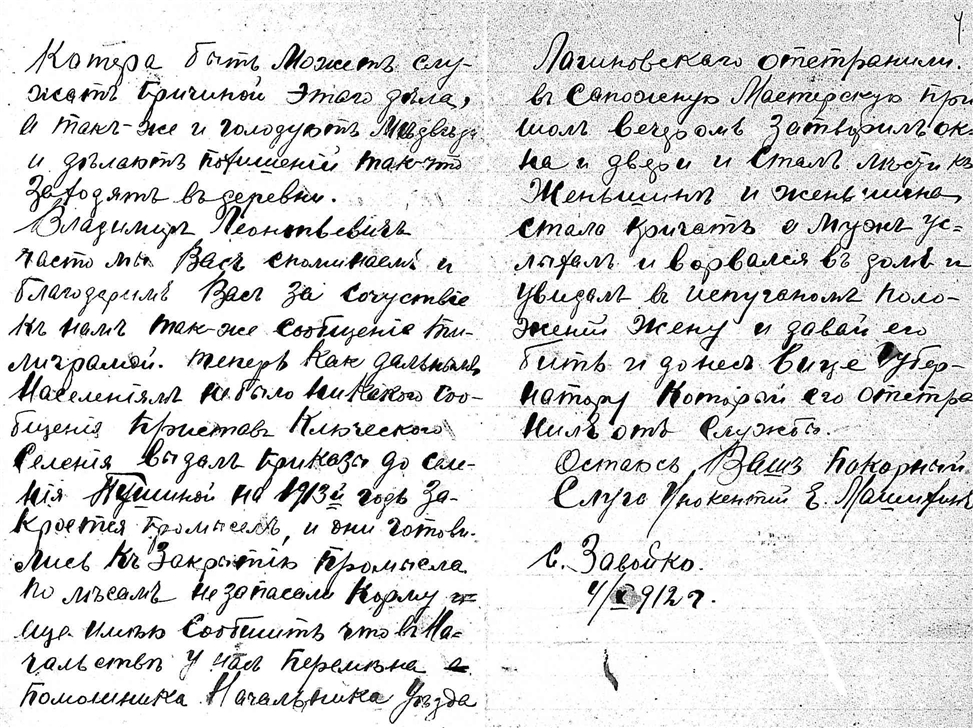 Катера быть Можетъ слу-
жатъ причиной этаго дѣла,
а такъ-же и голодуютъ Мѣдвѣди
и дѣлаютъ похишеніи такъ-что
Заходятъ въ деревни.
Владимиръ Леонтьевичъ
часто мы Васъ споминаемъ и
благодаримъ Васъ За Сочуствіе
Къ намъ так-же сообщенія ти-
лиграмой. теперь Как дальнымъ
Населеніямъ не было никакого Соо-
бщенія Приставъ Ключеского
Селенія выдалъ приказы до сели-
нія Тушиной на 1913й годъ За-
кроется промыселъ, и они готови-
лись Къ Закрытію промысла
по лѣсамъ не запасали Корму
еще имѣю Сообшить что въ На-
чальствѣ у насъ перемѣна
помошника Начальника Уѣзда
4
Логиновскаго отетранили.
въ Сапожную Мастерскую при
шолъ вечеромъ Затворилъ ок-
на и двери и Сталъ лѣсти къ
Женьшинѣ и женьшина
стала кричать а мужъ ус-
лыхалъ и ворвался въ домъ и
увидалъ в испуганомъ поло-
женіи Жену и давай его
бить и донесъ Вице Губер-
натору Который его отетра
нилъ отъ Службы.
Остаюсь Вашъ покорный
Слуга Инокентий Е. Машихинъ
С. Завойко.
4/X 912 г.